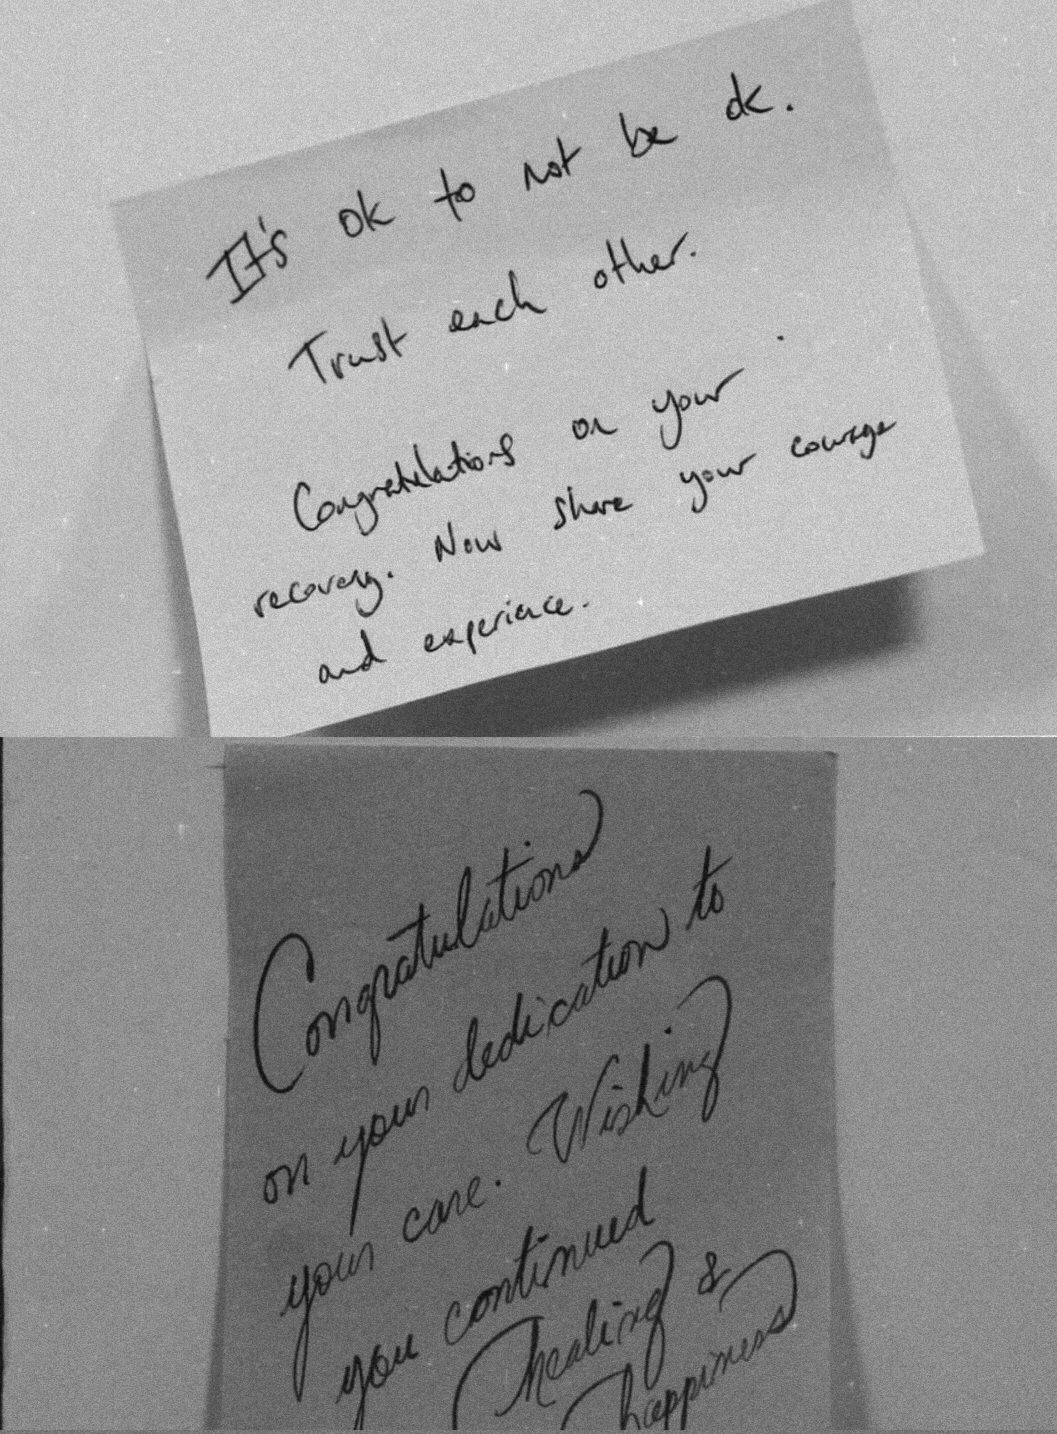 It's ok to not be ok.
Trust each other.
Congratulations on your
recovery. Now share your courage
and experience.
Congratulations
on your dedication to
your care. Wishing
you continued
healing &
happiness